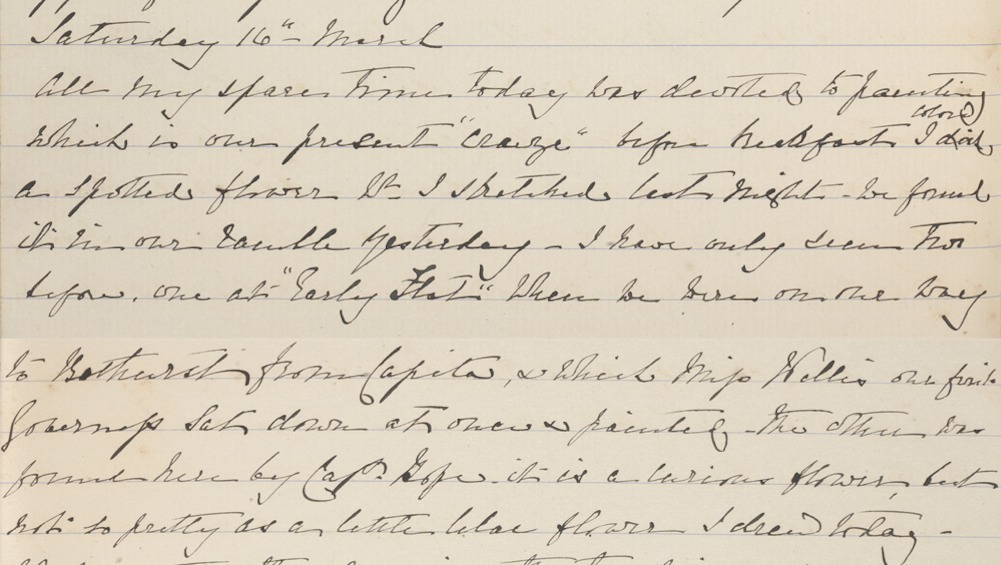 Saturday 16th March
All my spare time today was devoted to painting
which is our present "craize" before breakfast I colored
a spotted flower wh I sketched last night - we found
it in our ramble yesterday - I have only seen two
before. one at "Early Flat" when we were on our way
to Bathurst from Capita, & which Miss Willis our first
Governess sat down at once & painted - the other was
found here by Capn Gope. it is a curious flower, but
not so pretty as a little lilac flower I drew today -